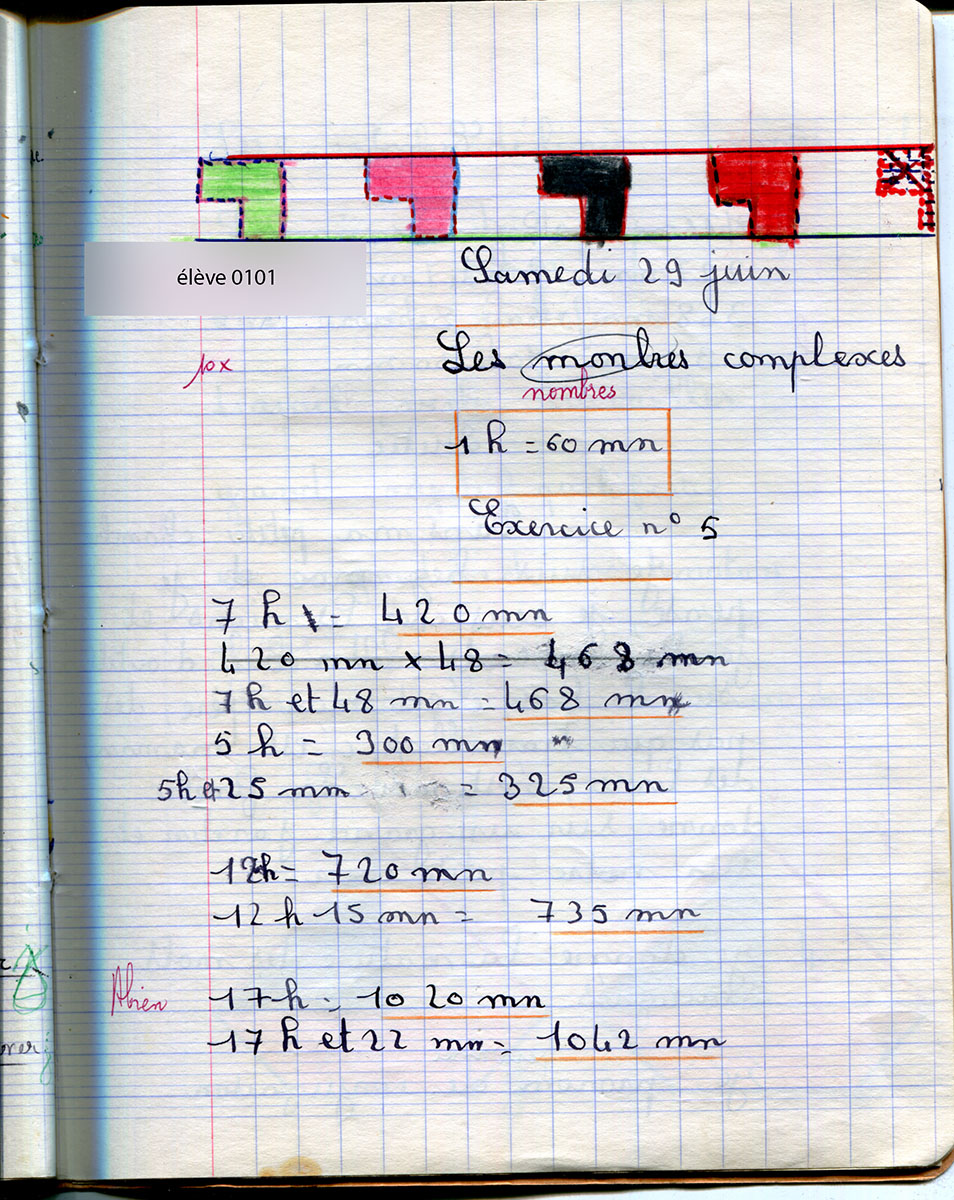 élève 0101
Samedi 29 juin
Les monbres complexes
nombres
10x
1 h = 60 mn
Exercice n° 5
7 h = 420 mn
420 mn × 48 = 468 mn
7h et 48 mn = 468 mn
5 h = 300 mn
5h et 25 mn = 325 mn
12h = 720 mn
12 h 15 mn = 735 mn
Abien
17h = 1020 mn
17 h et 22 mn = 1042 mn